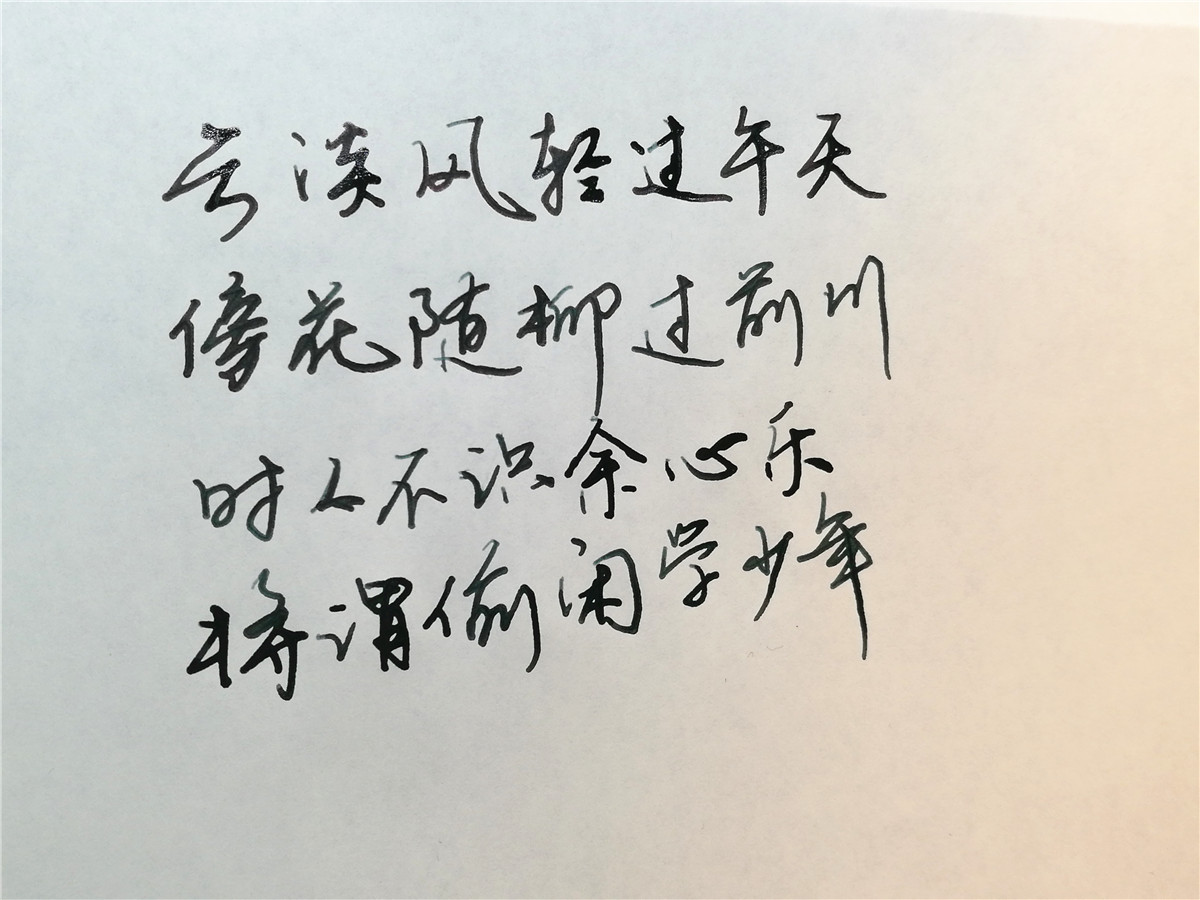 云淡风轻过午天
傍花随柳过前川
时人不识余心乐
将谓偷闲学少年